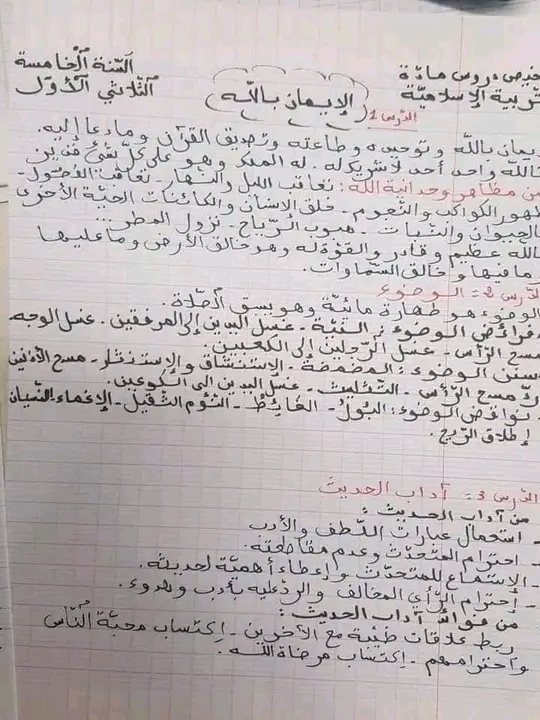 خيص دروس مادة السنة الخامسة
تربية الإسلامية الثلاثي الأول
الإيمان بالله
الدرس 1
يمان بالله و توحيده و طاعته و تصديق القرآن و ما دعا إليه.
الله واحد أحد لا شريك له. له الملك و هو على كل شيء قدير
من مظاهر وحدانية الله: تعاقب الليل و النهار - تعاقب الفصول -
ظهور الكواكب و النجوم - خلق الإنسان و الكائنات الحية الأخرى
الحيوان و النبات - هبوب الرياح - نزول المطر...
الله عظيم و قادر و القوة له و هو خالق الأرض و ما عليها
و ما فيها و خالق السماوات.
الدرس 2 = الوضوء
الوضوء هو طهارة مائية و هو يسبق الصلاة.
فرائض الوضوء: النية - غسل اليدين إلى المرفقين - غسل الوجه
مسح الرأس - غسل الرجلين إلى الكعبين.
سنن الوضوء: المضمضة - الإستنشاق و الإستنثار - مسح الأذنين
رد مسح الرأس - التثليث - غسل اليدين إلى الكوعين.
نواقض الوضوء: البول - الغائط - النوم الثقيل - الإغماء - النسيان
إطلاق الريح.
الدرس 3 = آداب الحديث
من آداب الحديث:
- استعمال عبارات اللطف و الأدب
- احترام المتحدث و عدم مقاطعته.
- الإستماع للمتحدث و إعطاء أهمية لحديثه.
- إحترام الرأي المخالف و الرد عليه بأدب و هدوء.
من فوائد آداب الحديث:
ربط علاقات طيبة مع الآخرين - إكتساب محبة الناس
و احترامهم - إكتساب مرضاة الله.